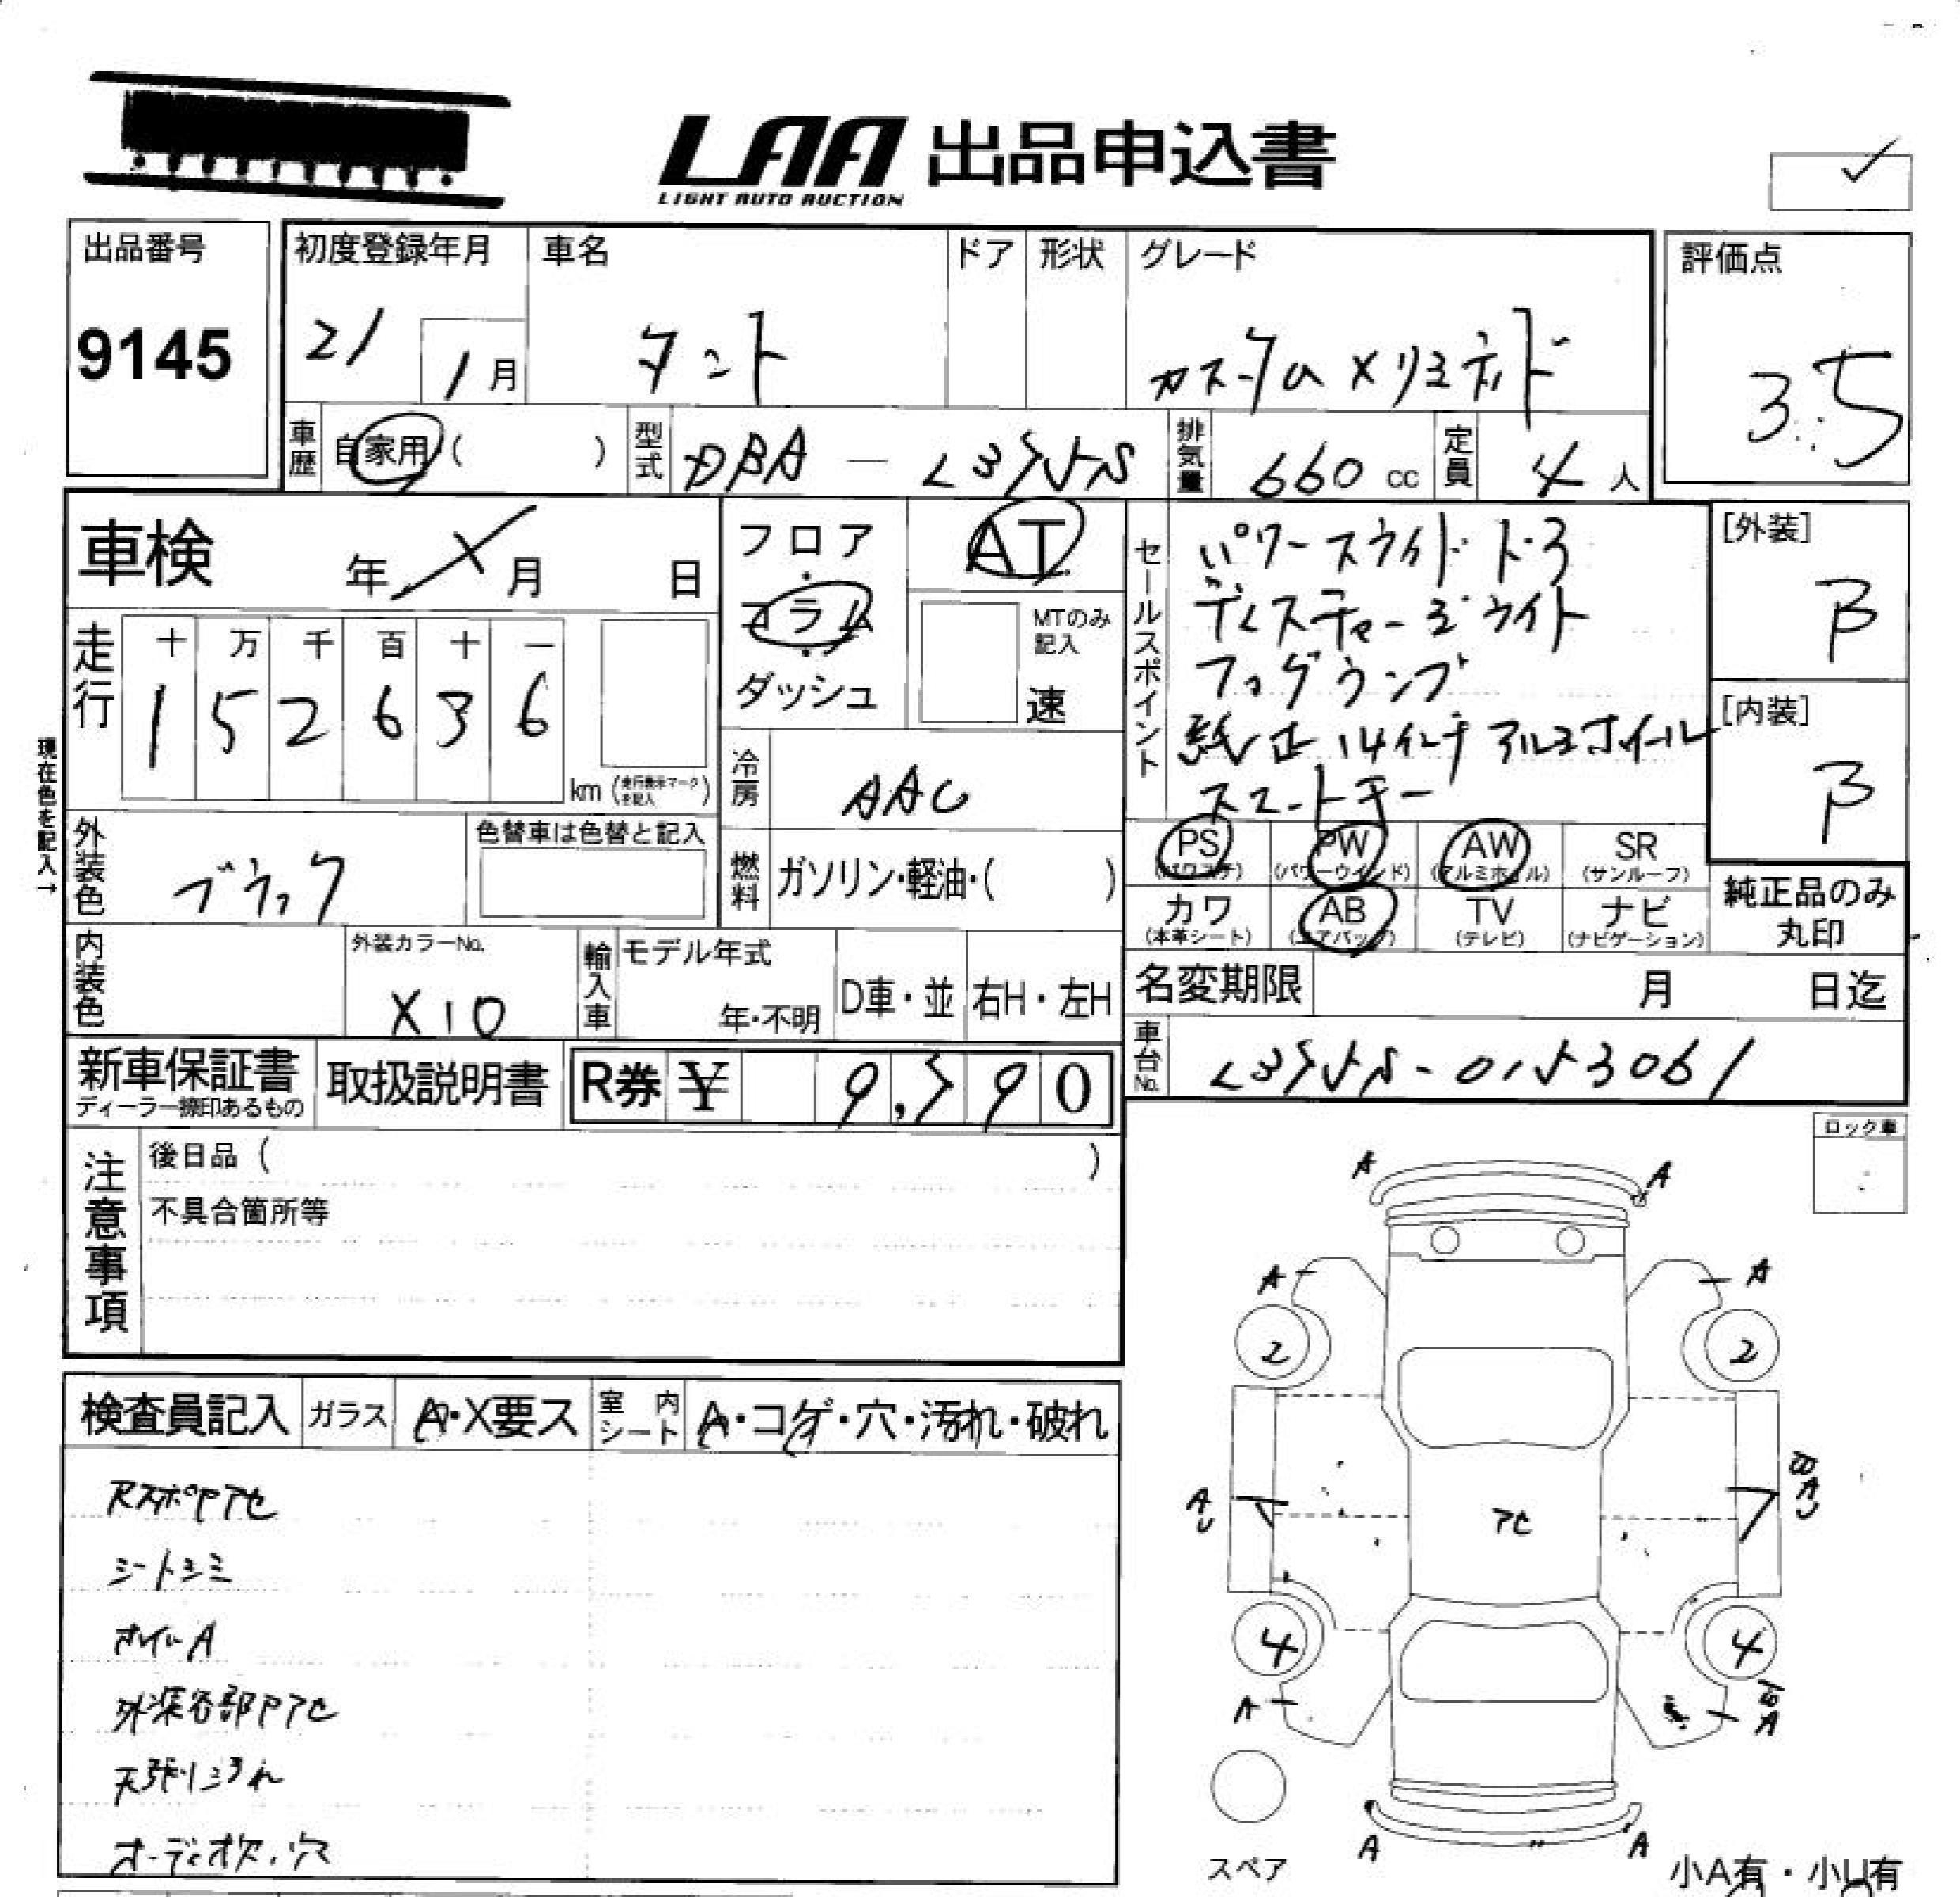 LAA 出品申込書
LIGHT AUTO AUCTION
出品番号
9145
初度登録年月
21
1月
車名
タント
ドア
形状
グレード
カスタム Xリミテッド
評価点
3.5
車歴
自家用( )
型式
DBA - L375S
排気量
660 cc
定員
4 人
車検
年 X 月 日
フロア
・
コラム
・
ダッシュ
AT
MTのみ
記入
速
セールスポイント
パワースライドドア
ディスチャージライト
フォグランプ
純正14インチアルミホイール
スマートキー
[外装]
B
[内装]
B
走行
十 万 千 百 十 一
1 5 2 6 3 6
km (走行表示マークを記入)
現在色を記入→
冷房
AAC
外装色
ブラック
色替車は色替と記入
燃料
ガソリン・軽油・( )
PS
(パワステ)
PW
(パワーウインド)
AW
(アルミホイル)
SR
(サンルーフ)
カワ
(本革シート)
AB
(エアバック)
TV
(テレビ)
ナビ
(ナビゲーション)
純正品のみ
丸印
内装色
外装カラーNo.
X10
輸入車
モデル年式
年・不明
D車・並
右H・左H
名変期限
月 日迄
新車保証書
ディーラー捺印あるもの
取扱説明書
R券 ¥ 9,590
車台No.
L375S-0153061
注意事項
後日品 ( )
不具合箇所等
ロック車
検査員記入
ガラス
A・X要ス
室内シート
A・コゲ・穴・汚れ・破れ
シートシミ
オイルA
外装各部Pアセ
天張リヨゴれ
オーディオ欠、穴
A
A
A
A
2
2
AU
アセ
BAU
4
4
A
BA
A
A
スペア
小A有・小U有